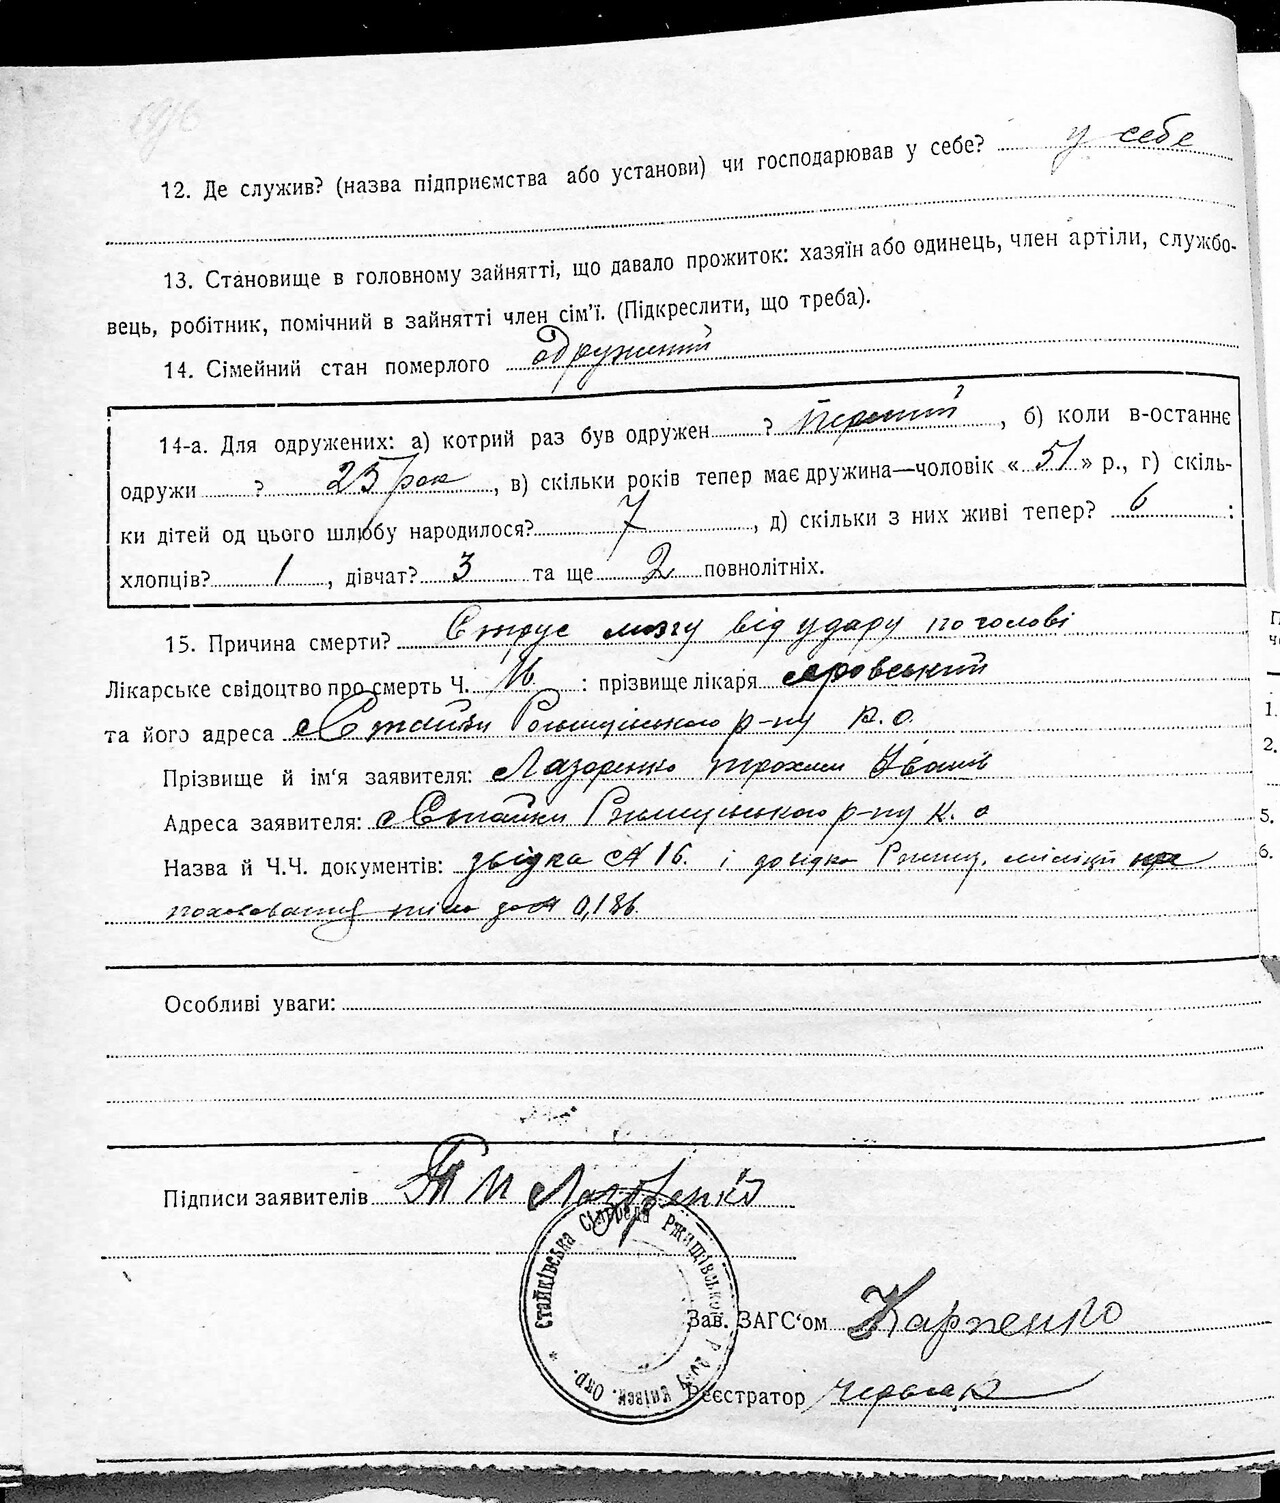 1916
12. Де служив? (назва підприємства або установи) чи господарював у себе? у себе
13. Становище в головному зайнятті, що давало прожиток: хазяїн або одинець, член артіли, службо-
вець, робітник, помічний в зайнятті член сім'ї. (Підкреслити, що треба).
14. Сімейний стан померлого одружений
14-а. Для одружених: а) котрий раз був одружен ? перший, б) коли в-останнє
одружи ? 25 рок, в) скільки років тепер має дружина—чоловік «51» р., г) скіль-
ки дітей од цього шлюбу народилося? 7, д) скільки з них живі тепер? 6:
хлопців? 1, дівчат? 3 та ще 2 повнолітніх.
15. Причина смерти? Струс мозгу від удару по голові
Лікарське свідоцтво про смерть Ч. 16: прізвище лікаря
та його адреса с Стайки Ржищівського р-ну К. О.
Прізвище й ім'я заявителя: Лазоренко Трохим Іванов
Адреса заявителя: с Стайки Ржищівського р-ну К. О
Назва й Ч.Ч. документів: звідка № 16. і довідка Ржищ. міліції на
поховання тіла за №
Особливі уваги:
Підписи заявителів Т И Лазоренко
Стайківська Сільрада Ржищівського Району Київск. Окр.
Зав. ЗАГС'ом Карпенко
Реєстратор
П
1.
2.
5.
6.